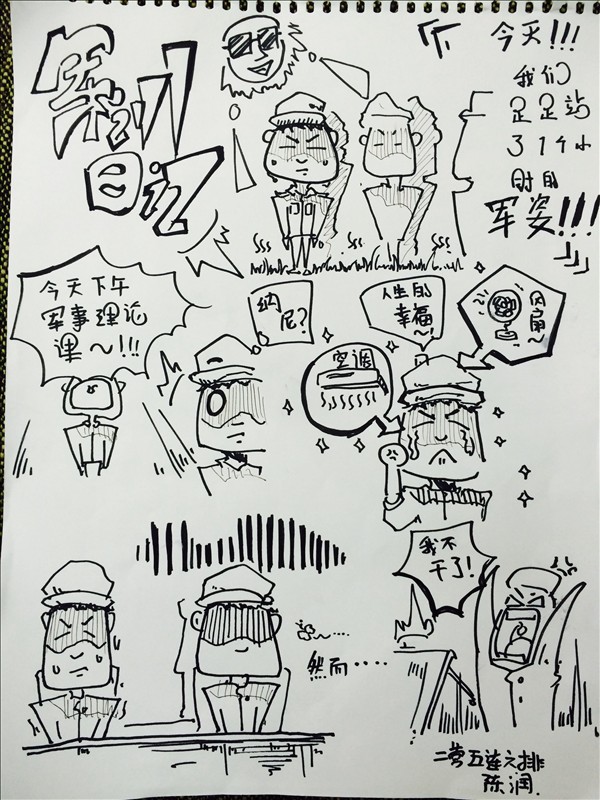 军训
日记
今天!!!
我们
足足站
3个小
时的
军姿!!!
今天下午
军事理论
课～!!!
纳
尼?
人生的
幸福~
风
扇~
空调
然而·····
我不
干了!
二营五连六排
陈润.